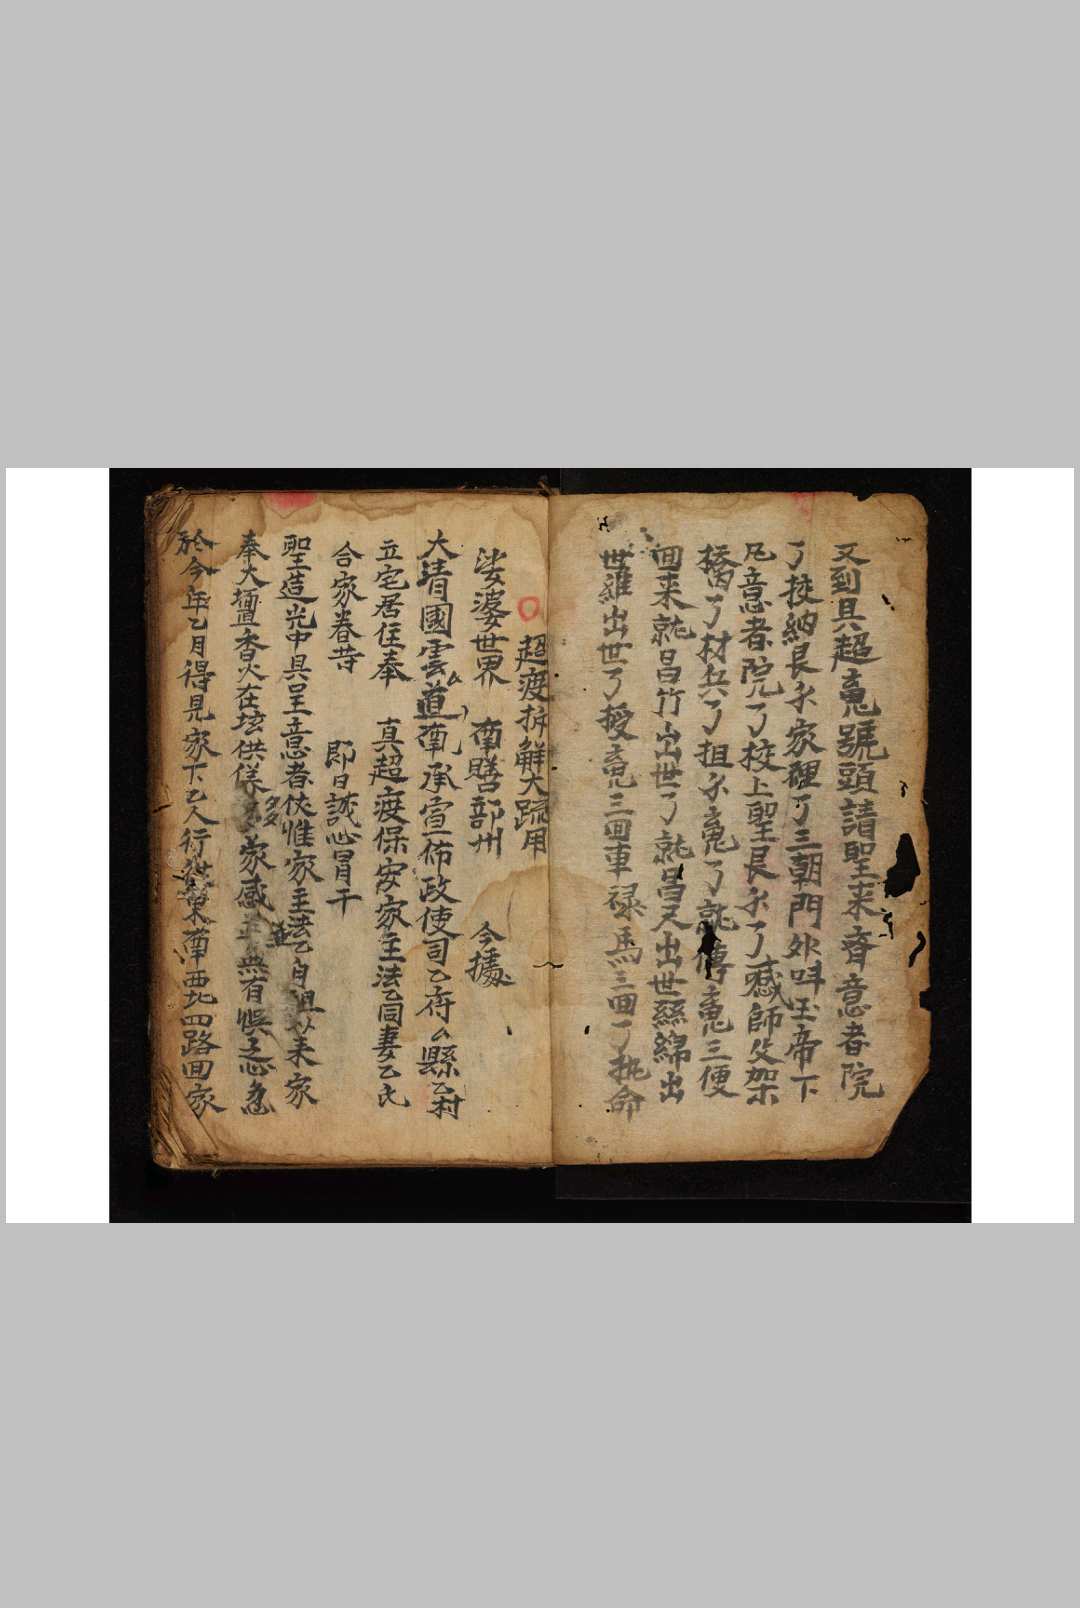 又到具超寬號頭請聖来齊意者院
了投納良公家理了三朝門外叫玉帝下
凡意者院了校上聖良公了感師父架
橋了材兵了担公寬了就傳寬三便
回来就昌竹出世了就昌又出世絲綿出
世雞出世了授寬三回車禄馬三回了执命
超度拆解大疏用
娑婆世界 南贍部州 今據
大清國雲道南承宣佈政使司乙府县縣乙村
立宅居住奉 真超度保安家主法乙同妻乙氏
合家眷等 即日誠心冒干
聖造光中具呈意者伏惟家主法乙自祖以来家
奉大壇香火在坛供樣多蒙感並無有悞志急
於今年乙月得見家下乙人行往東南西北四路回家